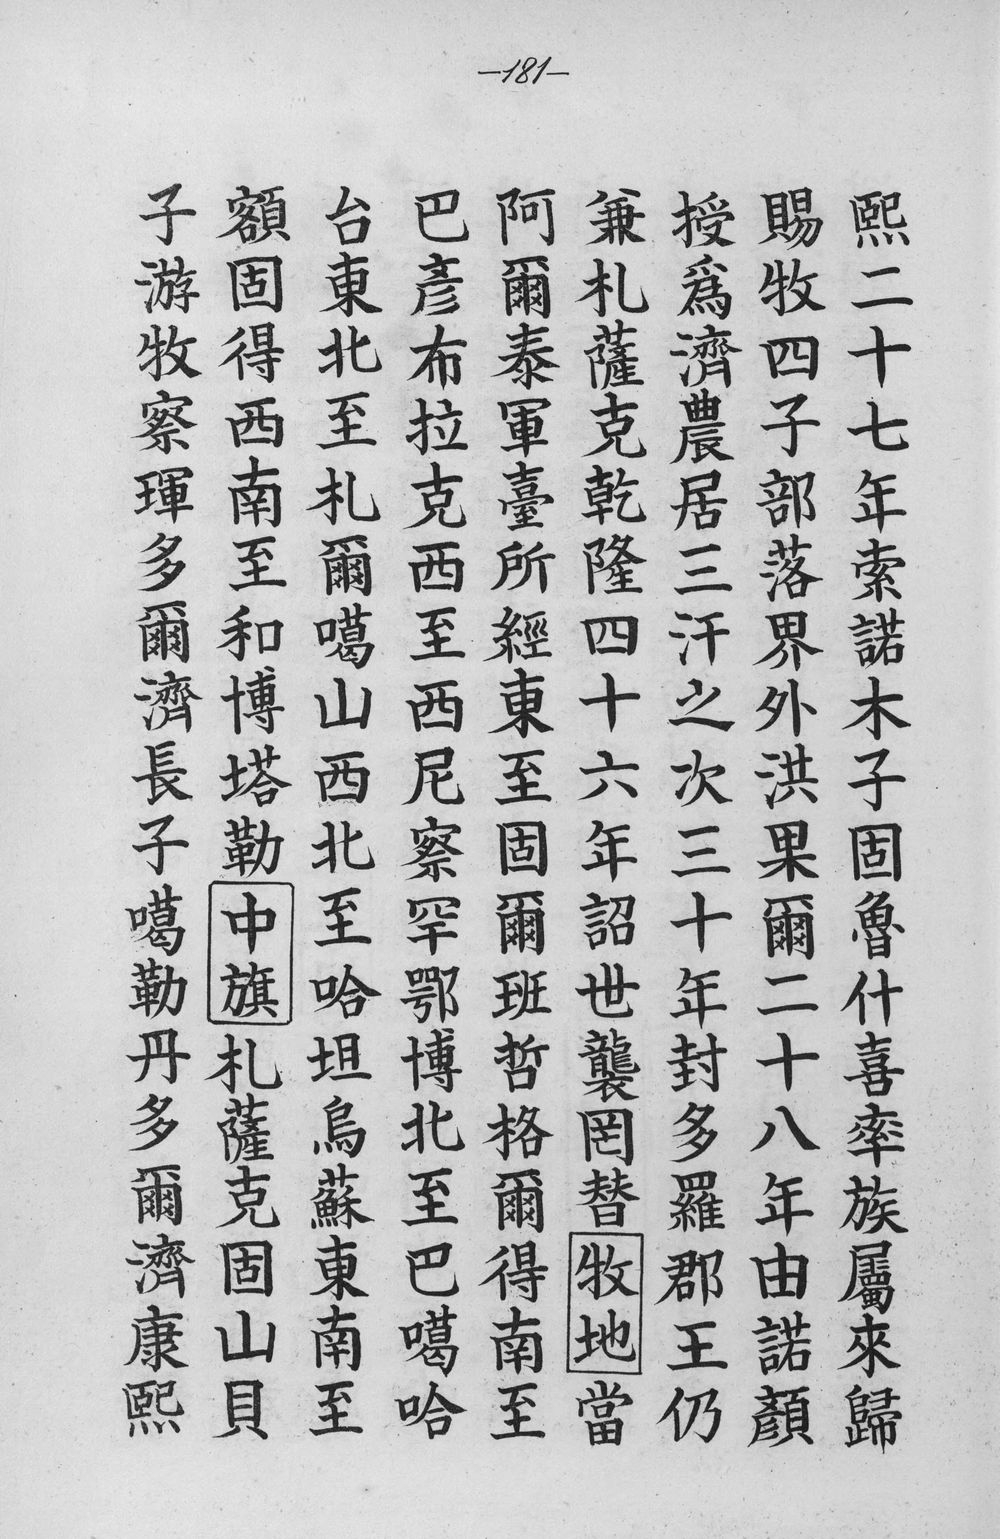 —181—
熙二十七年索諾木子固魯什喜率族屬來歸
賜牧四子部落界外洪果爾二十八年由諾顏
授爲濟農居三汗之次三十年封多羅郡王仍
兼札薩克乾隆四十六年詔世襲罔替牧地當
阿爾泰軍臺所經東至固爾班哲格爾得南至
巴彥布拉克西至西尼察罕鄂博北至巴噶哈
台東北至札爾噶山西北至哈坦烏蘇東南至
額固得西南至和博塔勒中旗札薩克固山貝
子游牧察琿多爾濟長子噶勒丹多爾濟康熙